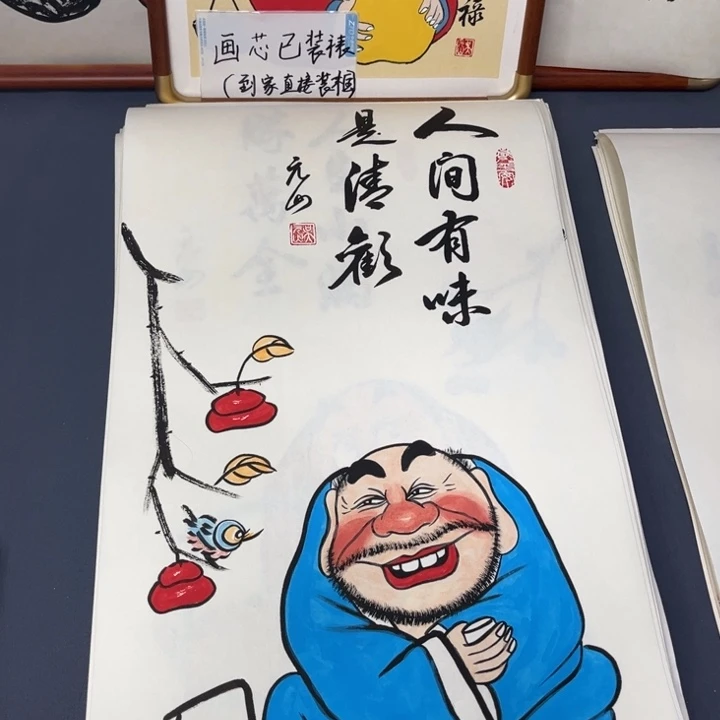 禄
画芯已装裱
(到家直接装框)
人间有味
是清歡
元山